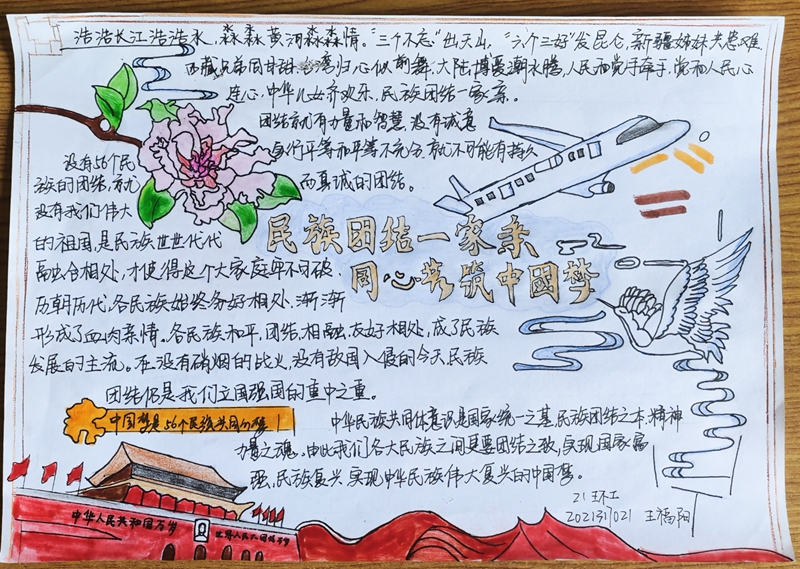 浩浩长江浩浩水，淼淼黄河淼淼情。"三个不忘"出天山，"六个三好"发昆仑，新疆姊妹共患难
西藏兄弟同甘甜，台湾归心似箭舞，大陆博爱潮水腾，人民和党手牵手，党和人民心
连心，中华儿女齐欢乐，民族团结一家亲。
团结就有力量和智慧，没有诚意
实行平等和平等不充分，就不可能有持久
而真诚的团结。
没有56个民
族的团结，就
没有我们伟大
的祖国，是民族世世代代
融合相处，才使得这个大家庭牢不可破，
历朝历代，各民族始终务好相处，渐渐
形成了血肉亲情。各民族和平，团结，相融，友好相处，成了民族
发展的主流。在没有硝烟的战火，没有敌国入侵的今天，民族
团结仍是我们立国强国的重中之重。
民族团结一家亲
同心共筑中国梦
中国梦是56个民族共同的梦！
中华民族共同体意识是国家统一之基，民族团结之本，精神
力量之魂。由此我们各大民族之间是要团结之致，实现国家富
强，民族复兴，实现中华民族伟大复兴的中国梦。
中华人民共和国万岁
世界人民大团结万岁
21环工
2021311021 王福阳